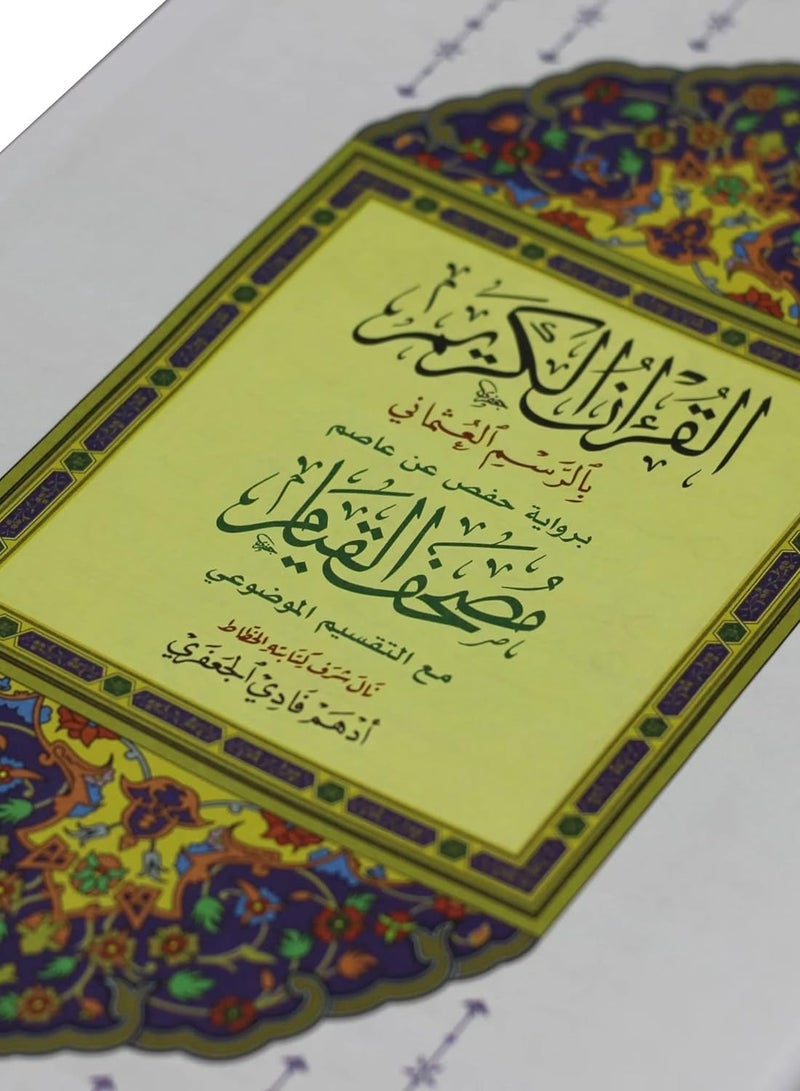 القُرْءَانُ الكَرِيمُ
بِٱلرَّسْمِ ٱلْعُثْمَانِي
برواية حفص عن عاصم
مُصْحَفُ القِيَامِ
مع التقسيم الموضوعي
نَالَ شَرَفَ كِتَابَتِهِ الخَطَّاط
أَدْهَمْ فَادِي ٱلجَعْفَرِيْ